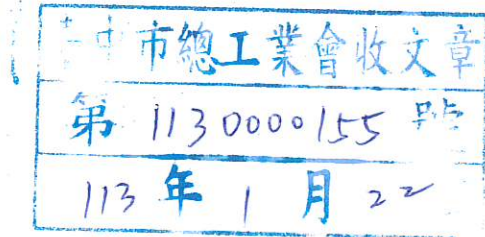 台中市總工業會收文章
第 1130000155 號
113 年 1 月 22